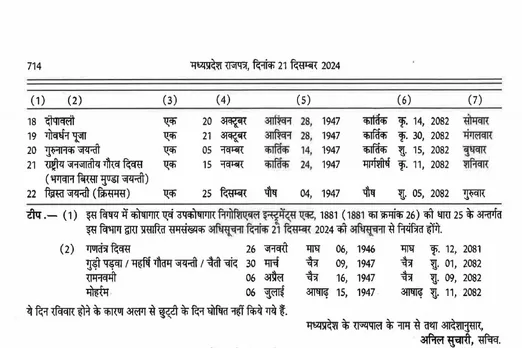 714
मध्यप्रदेश राजपत्र, दिनांक 21 दिसम्बर 2024
(1) (2) (3) (4) (5) (6) (7)
18 दीपावली एक 20 अक्टूबर आश्विन 28, 1947 कार्तिक कृ. 14, 2082 सोमवार
19 गोवर्धन पूजा एक 21 अक्टूबर आश्विन 28, 1947 कार्तिक कृ. 30, 2082 मंगलवार
20 गुरुनानक जयन्ती एक 05 नवम्बर कार्तिक 14, 1947 कार्तिक शु. 15, 2082 बुधवार
21 राष्ट्रीय जनजातीय गौरव दिवस एक 15 नवम्बर कार्तिक 24, 1947 मार्गशीर्ष कृ. 11, 2082 शनिवार
(भगवान बिरसा मुण्डा जयन्ती)
22 ख्रिस्त जयन्ती (क्रिसमस) एक 25 दिसम्बर पौष 04, 1947 पौष शु. 05, 2082 गुरुवार
टीप.— (1) इस विषय में कोषागार एवं उपकोषागार निगोशिएबल इन्स्ट्रूमेंट्स एक्ट, 1881 (1881 का क्रमांक 26) की धारा 25 के अन्तर्गत
इस विभाग द्वारा प्रसारित समसंख्यक अधिसूचना दिनांक 21 दिसम्बर 2024 की अधिसूचना से नियंत्रित होंगे.
(2) गणतंत्र दिवस 26 जनवरी माघ 06, 1946 माघ कृ. 12, 2081
गुड़ी पड़वा / महर्षि गौतम जयन्ती / चैती चांद 30 मार्च चैत्र 09, 1947 चैत्र शु. 01, 2082
रामनवमी 06 अप्रैल चैत्र 16, 1947 चैत्र शु. 09, 2082
मोहर्रम 06 जुलाई आषाढ़ 15, 1947 आषाढ़ शु. 11, 2082
ये दिन रविवार होने के कारण अलग से छुट्टी के दिन घोषित नहीं किये गये हैं.
मध्यप्रदेश के राज्यपाल के नाम से तथा आदेशानुसार,
अनिल सुचारी, सचिव.